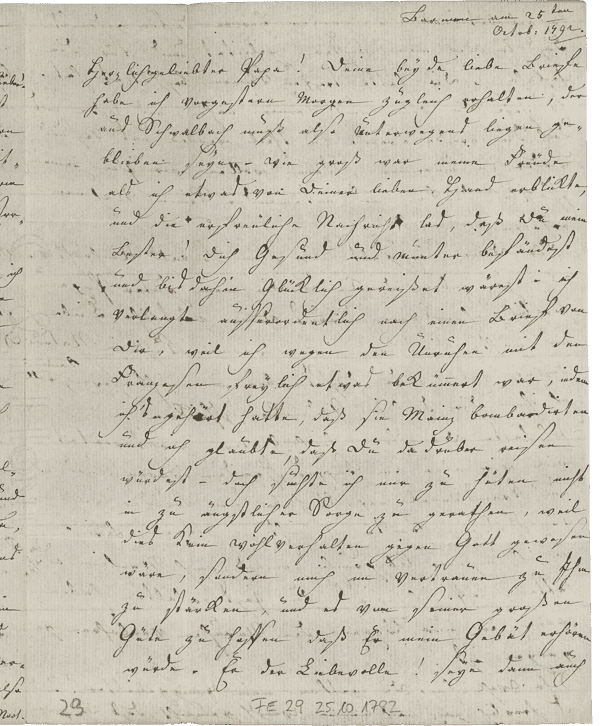 Barmen am 25 ten
Octob: 1792.
Herzlichgeliebter Papa! Deine beyde liebe Briefe
habe ich vorgestern Morgen zugleich erhalten, der
aus Schwalbach muß also unterwegens liegen ge-
blieben seyn – wie groß war meine Freude
als ich etwas von Deiner lieben Hand erblikte,
und die erfreuliche Nachricht las, daß Du mein
Bester! Dich Gesund und munter befändest
und bis dahin Glücklich gereiset wärest – ich
verlangte ausserordentlich nach einem Brief von
Dir, weil ich wegen den Unruhen mit den
Franzosen freylich etwas bekümmert war, indem
ich gehört hatte, daß sie Mainz bombardirten
und ich glaubte, daß Du da drüber reisen
würdest – doch suchte ich mir zu hüten nicht
in zu ängstlicher Sorge zu gerathen, weil
dies kein wohlverhalten gegen Gott gewesen
wäre, sondern mich im Vertrauen zu Ihm
zu stärken, und es von seiner großen
Güte zu hoffen daß Er mein Gebät erhören
würde. Er der Liebevolle! seye dann auch
29 FE 29 25.10.1792